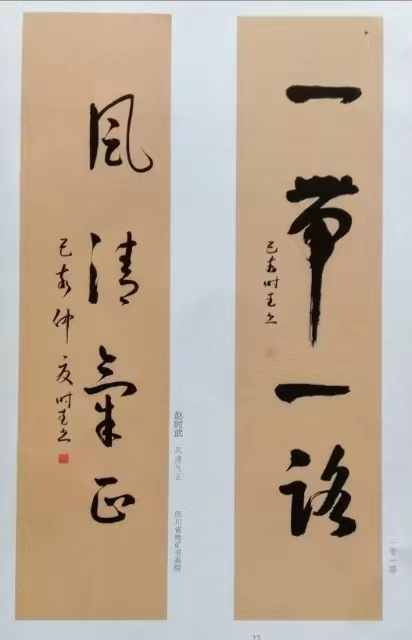 一帶一路
己亥时武书
一带一路
風清氣正
己亥仲夏时武书
赵时武 风清气正 四川省地矿书画院
22